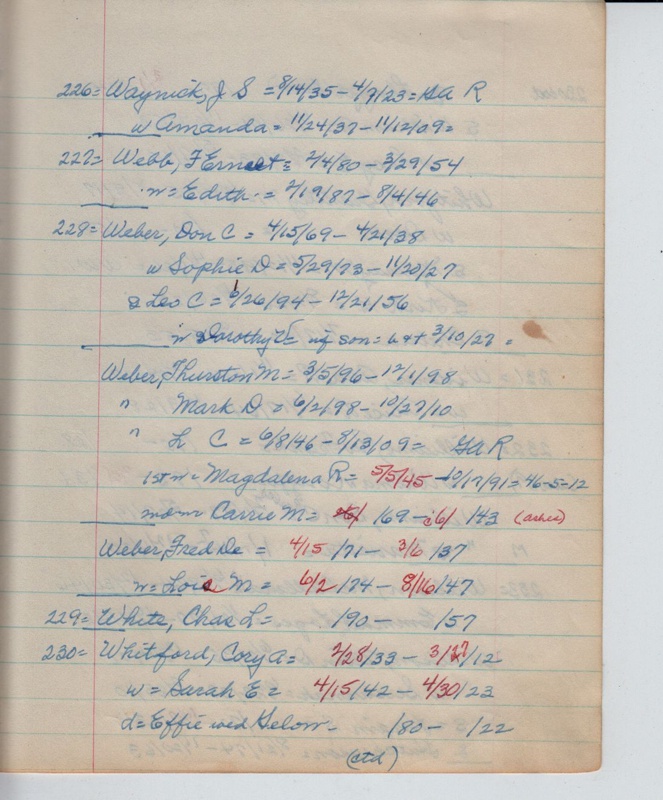 226= Waynick, J S = 8/14/35 - 4/9/23 = GA R
w Amanda = 11/24/37 - 11/12/09 =
227= Webb, F Ernest = 2/4/80 - 3/29/54
w = Edith = 2/19/87 - 8/4/46
228= Weber, Don C = 4/15/69 - 4/21/38
w Sophie D = 5/29/73 - 11/20/27
s Leo C = 6/26/94 - 12/21/56
w Dorothy E = wf son = b & d 3/10/27 =
Weber, Thurston M = 3/5/96 - 12/1/98
" Mark D = 6/2/98 - 10/27/10
" L C = 6/8/46 - 8/13/09 = GA R
1st w = Magdalena R = 5/5/45 - 10/17/91 = 46-5-12
2nd w Carrie M = /69 - /43 (ashes)
Weber, Fred De = 4/15/71 - 3/6/37
w = Lois M = 6/2/74 - 8/16/47
229= White, Chas L = /90 - /57
230= Whitford, Cory A = 2/28/33 - 3/27/12
w = Sarah E = 4/15/42 - 4/30/23
d = Effie wid Gelow - /80 - /22
(ctd)